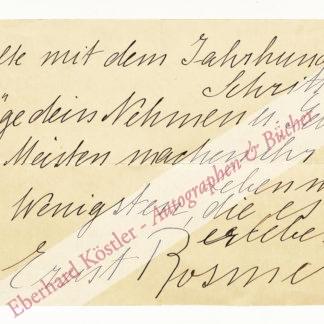 lte mit dem Jahrhun
Schrit
ge dein Nehmen u. G
Meisten machen ihr
Leben n
Wenigsten, die es
erlebe
Ernst Rosme
Eberhard Köstler - Autographen & Bücher